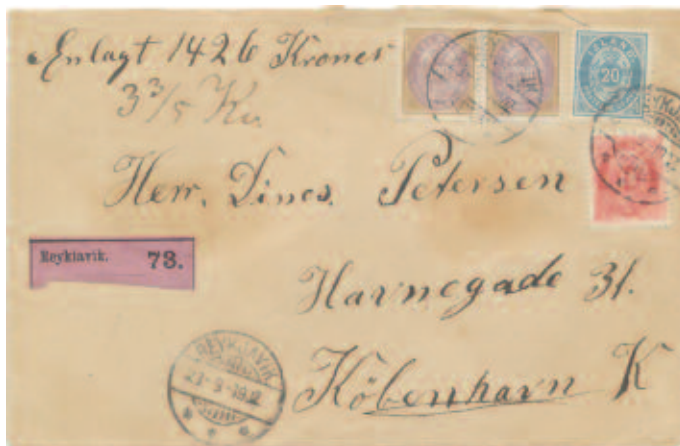 Enlagt 1426 Kroner
3 3/5 Kv.
20
Herr. Dines. Petersen
Reykiavik. 73.
Havnegade 31.
REYKJAVIK
København K